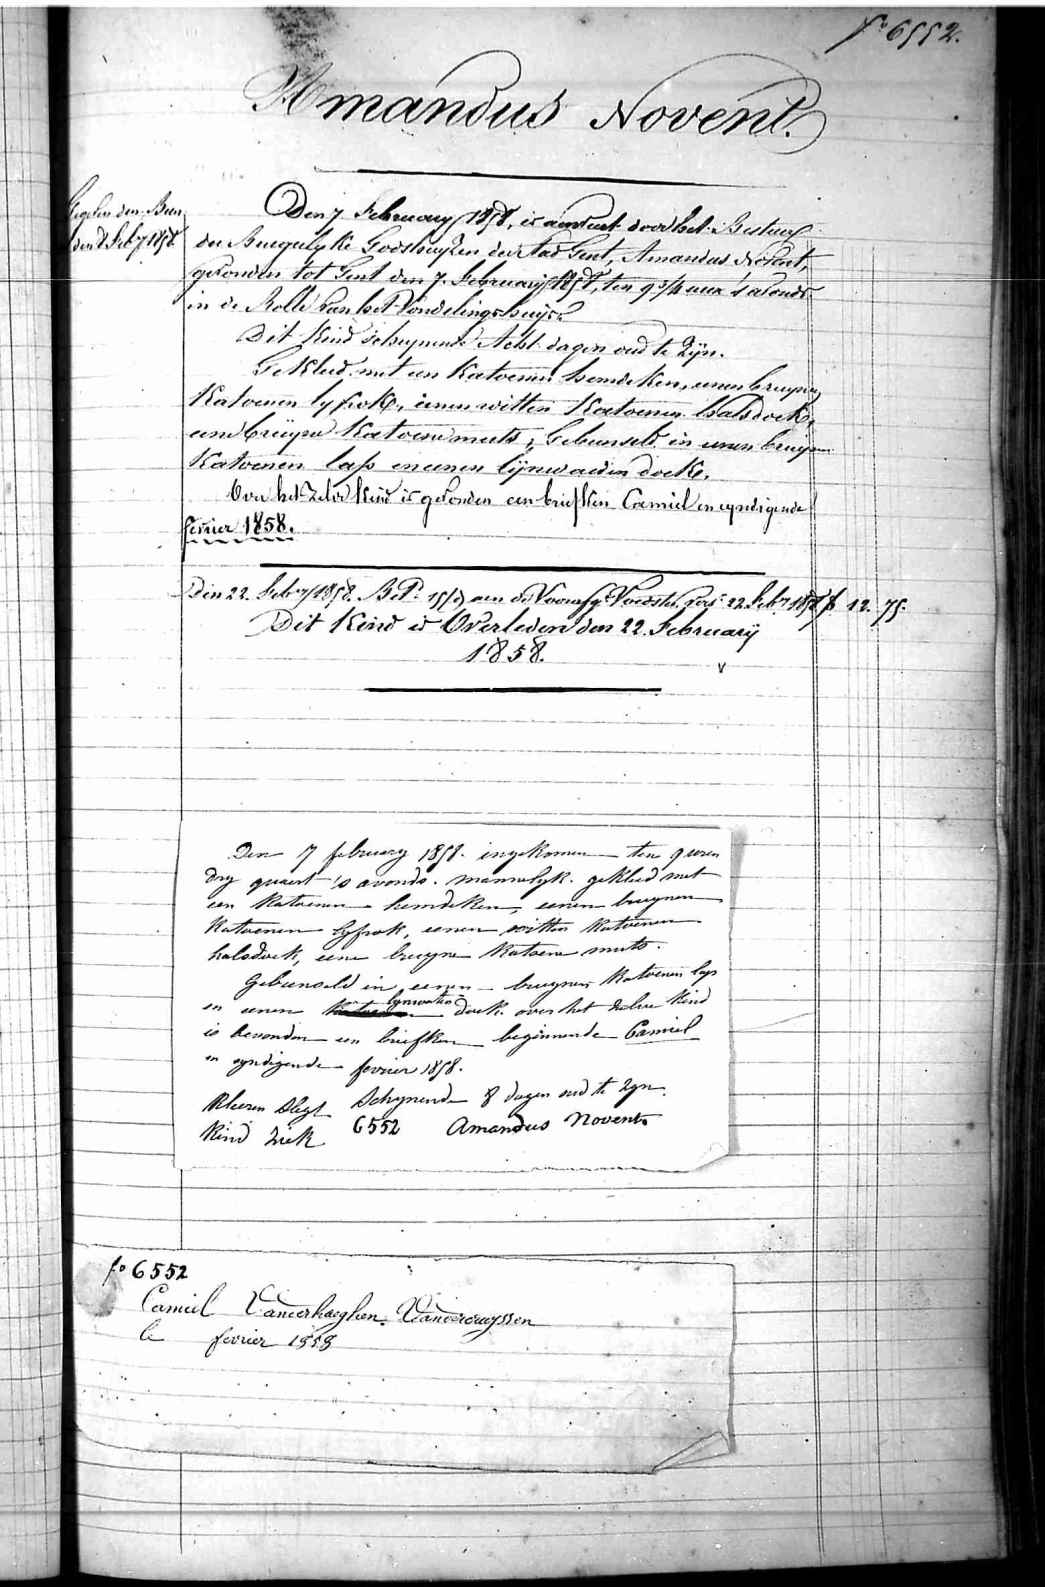 fo 6552.
Amandus Novent.
Gegeven den Been
den 8 Feb.y 1858
Den 7 February 1858, is aenveert door het Bestuer
der Burgelyke Godshuyzen der stad Gent, Amandus Novent,
gevonden tot Gent den 7. February 1858, ten 9 3/4 uren 's avonds
in de Rolle van het Vondelingshuys.
Dit Kind schynende Acht dagen oud te Zyn.
Gekleed met een Katoenen hemdeken, eenen bruynen
Katoenen lyfrok, eenen witten Katoenen halsdoek,
eene bruyne Katoene muts, Gebunseld in eenen bruynen
Katoenen lap en eenen lynwaeden doek.
Over het Zelve Kind is gevonden een briefken Camiel en eyndigende
fevrier 1858.
Den 22. Feb.y 1858. Bet. 15/9 aen de Voedst. 22 Feb.y 1858 f 12. 75.
Dit Kind is Overleden den 22. February
1858.
Den 7 february 1858. ingekomen ten 9 uren
dry quaert 's avonds. mannelyk. gekleed met
een Katoenen hemdeken, eenen bruynen
Katoenen lyfrok, eenen witten Katoenen
halsdoek, eene bruyne Katoene muts.
Gebunseld in eenen bruynen Katoenen lap
en eenen lynwaeten doek. over het zelve Kind
is bevonden een briefken beginnende Camiel
en eyndigende fevrier 1858.
Kleeren Slegt Schynende 8 dagen oud te Zyn.
Kind Ziek 6552 Amandus Novent
fo 6552
Camiel Vanderhaeghen. Vandercruyssen
le fevrier 1858